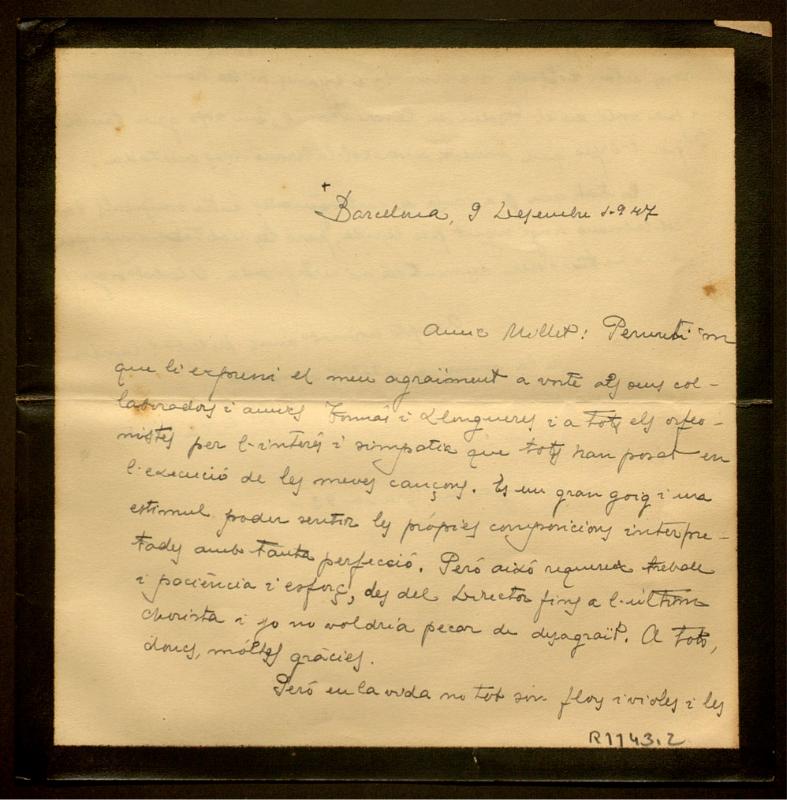 +
Barcelona, 9 Desembre 1947
Amic Millet: Permeti'm
que li expressi el meu agraïment a vostè als seus col-
laboradors i amics Tomás i Llongueres i a tots els orfeo-
nistes per l'interès i simpatia que tots han posat en
l'execució de les meves cançons. Es un gran goig i una
estimul poder sentir les própies composicions interpre-
tades amb tanta perfecció. Peró aixó requereix treball
i paciència i esforç, des del Director fins a l'últim
chorista i jo no voldría pecar de desagraït. A tots,
doncs, móltes gràcies.
Peró en la vida no tot són flors i violes i les
R1143,2